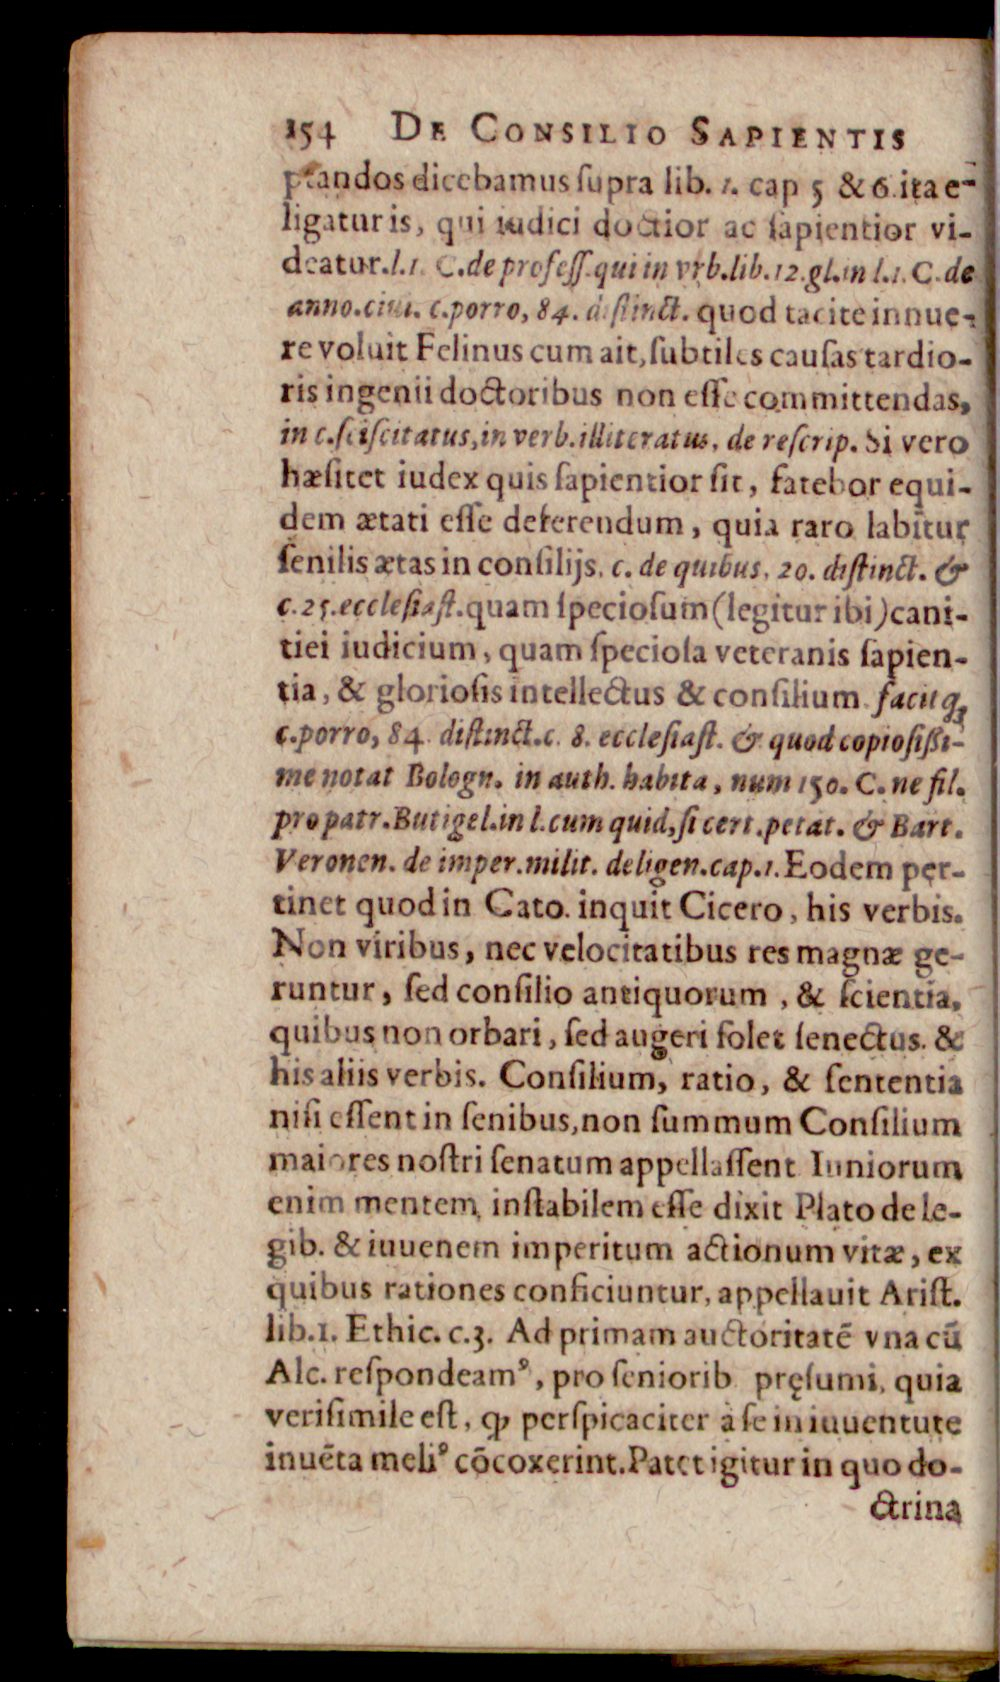 154 DE CONSILIO SAPIENTIS
ptandos dicebamus ſupra lib. 1. cap 5 & 6. ita e-
ligatur is, qui iudici doctior ac ſapientior vi-
deatur. l.1. C. de profeſſ. qui in vrb. lib. 12. gl. in l. 1. C. de
anno. ciui. c. porro, 84. diſtinct. quod tacite innue-
re voluit Felinus cum ait, ſubtiles cauſas tardio-
ris ingenii doctoribus non eſſe committendas,
in c. ſciſcitatus, in verb. illiteratus, de reſcrip. Si vero
hæſitet iudex quis ſapientior ſit, fatebor equi-
dem ætati eſſe deferendum, quia raro labitur
ſenilis ætas in conſilijs. c. de quibus, 20. diſtinct. &
c. 25. eccleſiaſt. quam ſpecioſum (legitur ibi) cani-
tiei iudicium, quam ſpecioſa veteranis ſapien-
tia, & glorioſis intellectus & conſilium. facit q;
c. porro, 84. diſtinct. c. 8. eccleſiaſt. & quod copioſißi-
me notat Bologn. in auth. habita, num 150. C. ne fil.
pro patr. Butigel. in l. cum quid, ſi cert. petat. & Bart.
Veronen. de imper. milit. deligen. cap. 1. Eodem per-
tinet quod in Cato. inquit Cicero, his verbis.
Non viribus, nec velocitatibus res magnæ ge-
runtur, ſed conſilio antiquorum, & ſcientia,
quibus non orbari, ſed augeri ſolet ſenectus. &
his aliis verbis. Conſilium, ratio, & ſententia
niſi eſſent in ſenibus, non ſummum Conſilium
maiores noſtri ſenatum appellaſſent Iuniorum
enim mentem, inſtabilem eſſe dixit Plato de le-
gib. & iuuenem imperitum actionum vitæ, ex
quibus rationes conficiuntur, appellauit Ariſt.
lib. 1. Ethic. c. 3. Ad primam auctoritatē vna cū
Alc. reſpondeamꝰ, pro ſeniorib. pręſumi, quia
veriſimile eſt, ꝙ perſpicaciter à ſe in iuuentute
inuēta meliꝰ cōcoxerint. Patet igitur in quo do-
ctrina